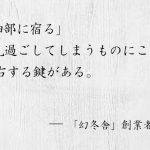 細部に宿る」
見過ごしてしまうものにこ
右する鍵がある。
― 「幻冬舎」創業者